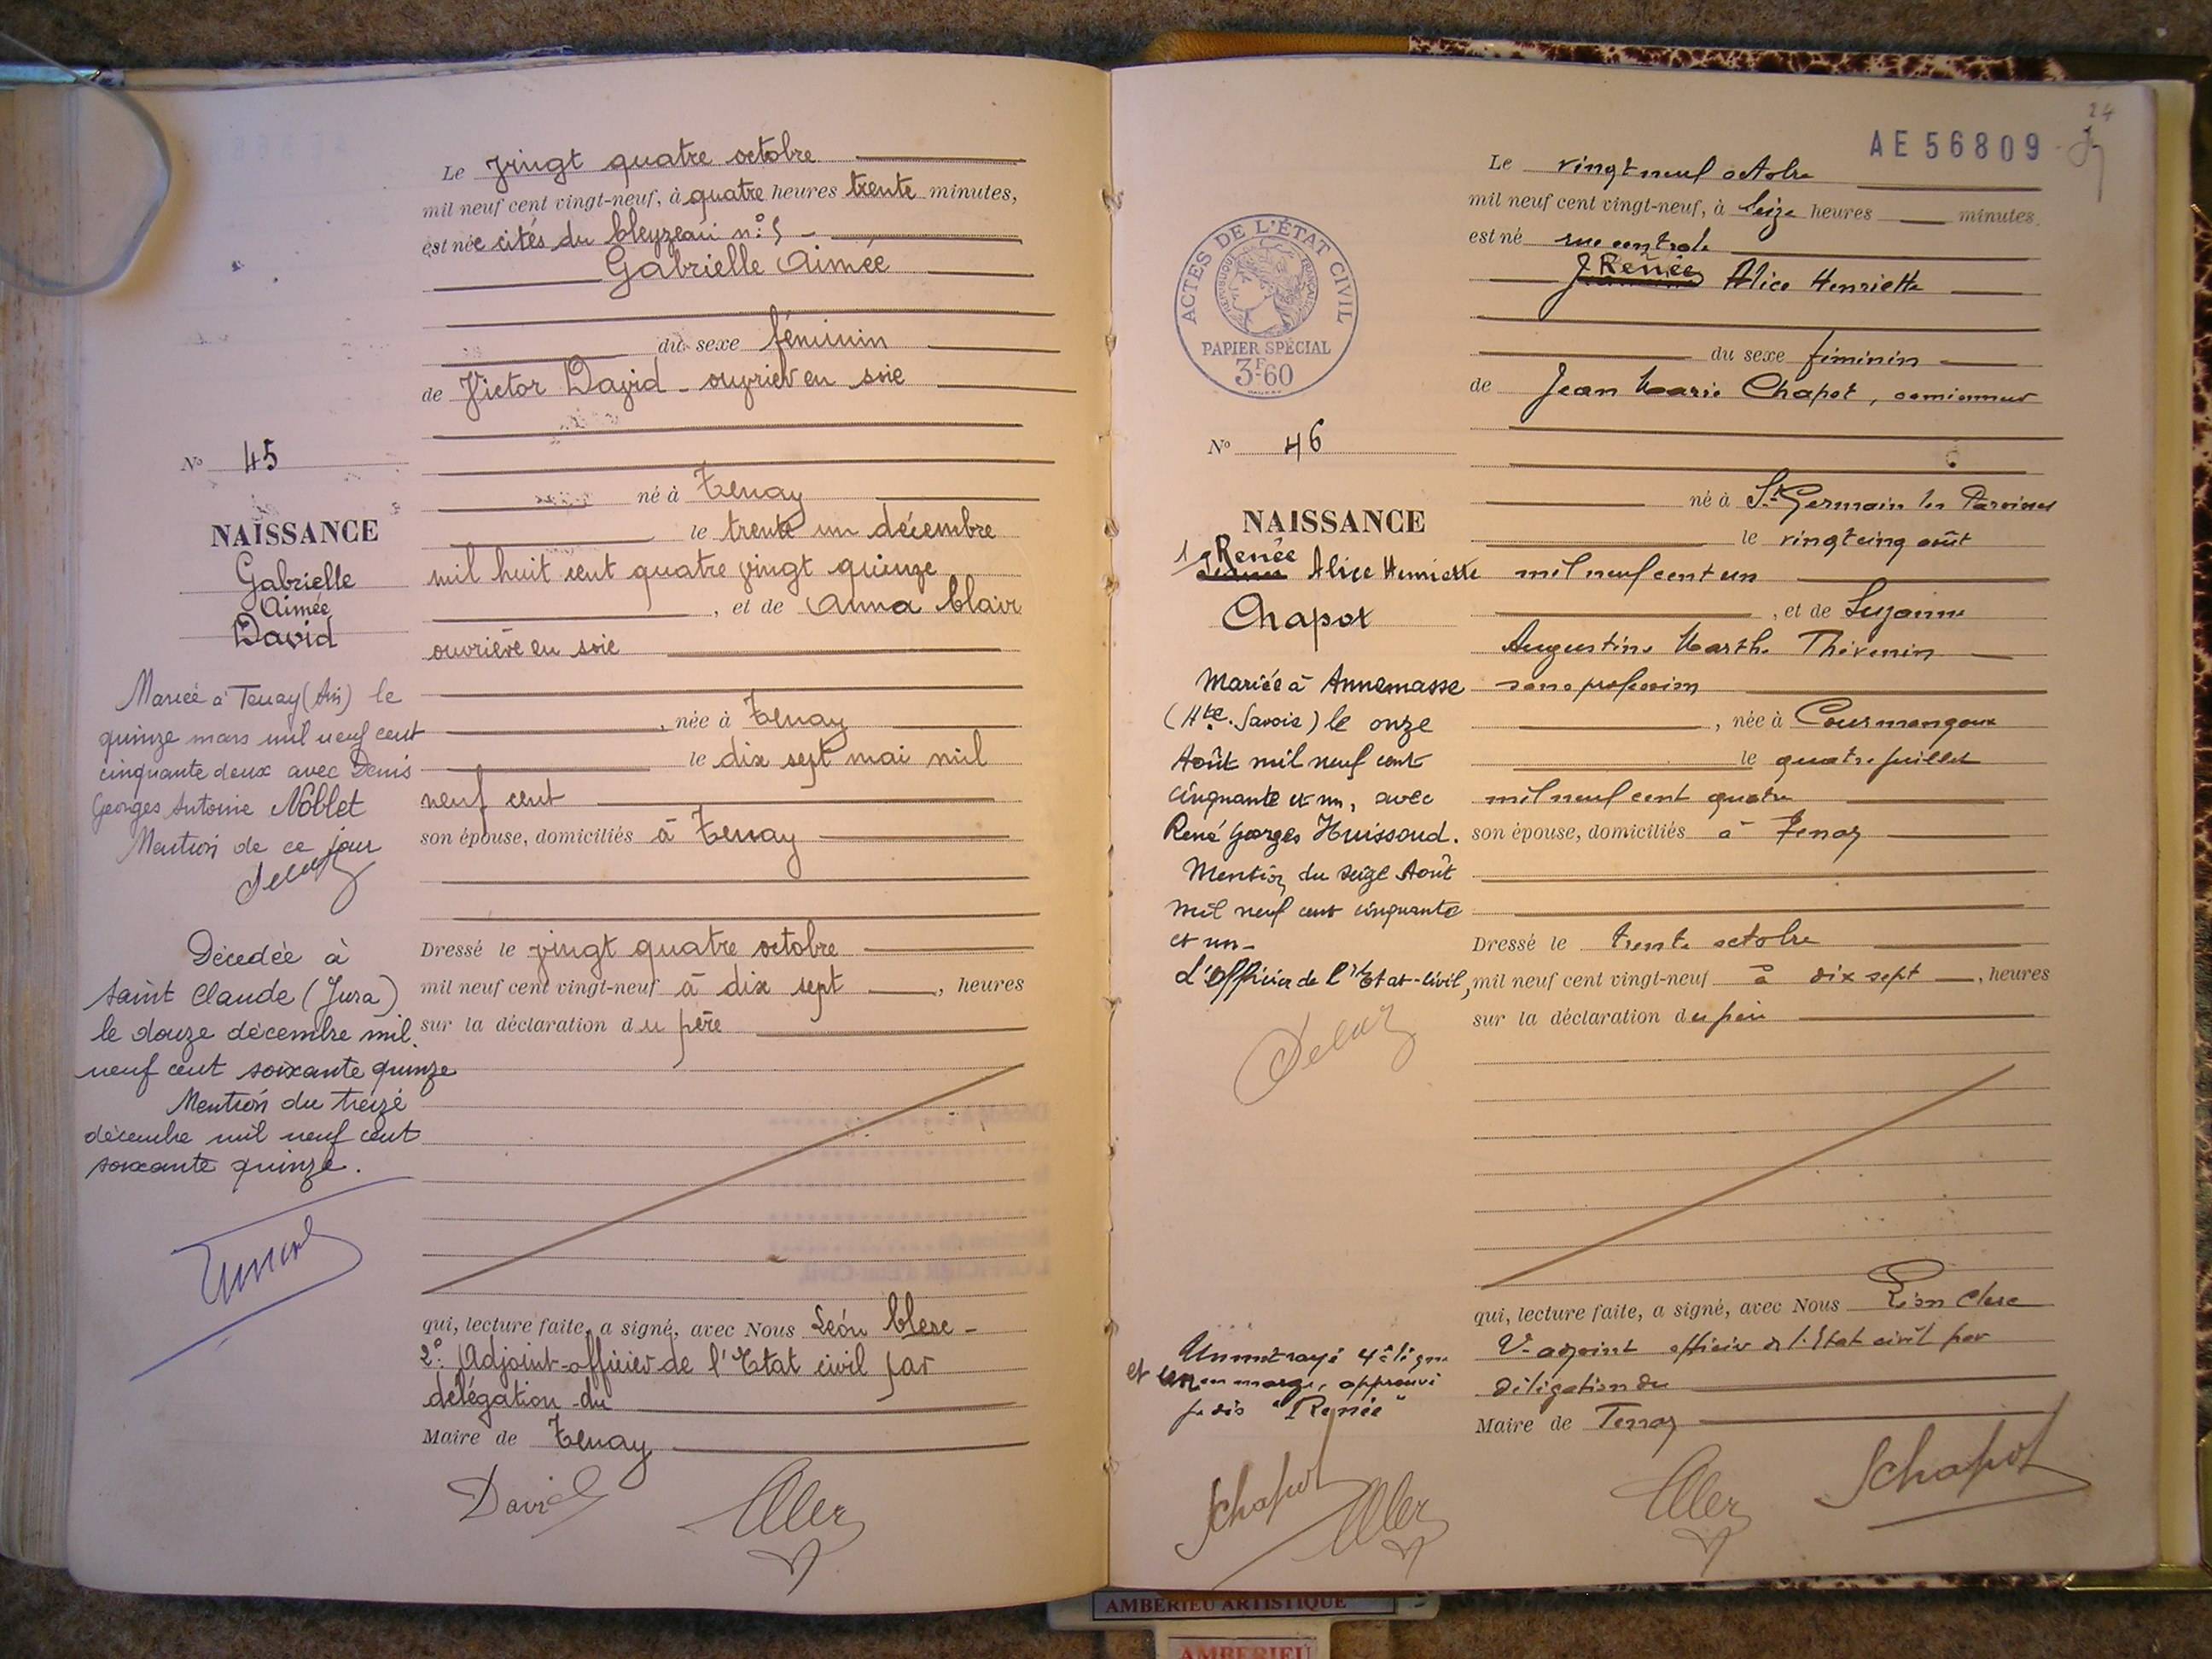 Le vingt quatre octobre
mil neuf cent vingt-neuf, à quatre heures trente minutes,
est née cités du Cleyzeau n° 5
Gabrielle Aimée
du sexe féminin
de Victor David - ouvrier en soie
N° 45
né à Tenay
NAISSANCE
le trente un décembre
Gabrielle
Aimée
David
mil huit cent quatre vingt quinze
, et de Anna Clair
ouvrière en soie
, née à Tenay
le dix sept mai mil
neuf cent
son épouse, domiciliés à Tenay
Mariée à Tenay (Ain) le
quinze mars mil neuf cent
cinquante deux avec Denis
Georges Antoine Noblet
Mention de ce jour
Décédée à
Saint Claude (Jura)
le douze décembre mil
neuf cent soixante quinze
Mention du treize
décembre mil neuf cent
soixante quinze.
Dressé le vingt quatre octobre
mil neuf cent vingt-neuf à dix sept , heures
sur la déclaration du père
qui, lecture faite, a signé, avec Nous Léon Clerc -
2° Adjoint-officier de l'Etat civil par
délégation du
Maire de Tenay
David
24
AE 56809
Le vingt neuf octobre
mil neuf cent vingt-neuf, à seize heures minutes.
est né rue centrale
Renée Alice Henriette
du sexe féminin
de Jean Marie Chapot, camionneur
ACTES DE L'ÉTAT CIVIL
RÉPUBLIQUE FRANÇAISE
PAPIER SPÉCIAL
3F60
N° 46
né à St Germain les Paroisses
NAISSANCE
le vingt cinq août
Renée Alice Henriette
Chapot
mil neuf cent un
, et de Suzanne
Augustine Marthe Thévenin
sans profession
, née à Courmangoux
le quatre juillet
mil neuf cent quatre
son épouse, domiciliés à Tenay
Mariée à Annemasse
(Hte. Savoie) le onze
Août mil neuf cent
cinquante et un, avec
René Georges Huissoud.
Mention du seize Août
mil neuf cent cinquante
et un -
L'Officier de l'Etat-civil,
Dressé le trente octobre
mil neuf cent vingt-neuf à dix sept , heures
sur la déclaration du père
qui, lecture faite, a signé, avec Nous Léon Clerc
2e adjoint officier de l'Etat civil par
délégation du
Maire de Tenay
Un mot rayé 4e ligne
et un en marge, approuvé
je dis "Renée"
JChapot
JChapot
AMBÉRIEU ARTISTIQUE
AMBÉRIEU